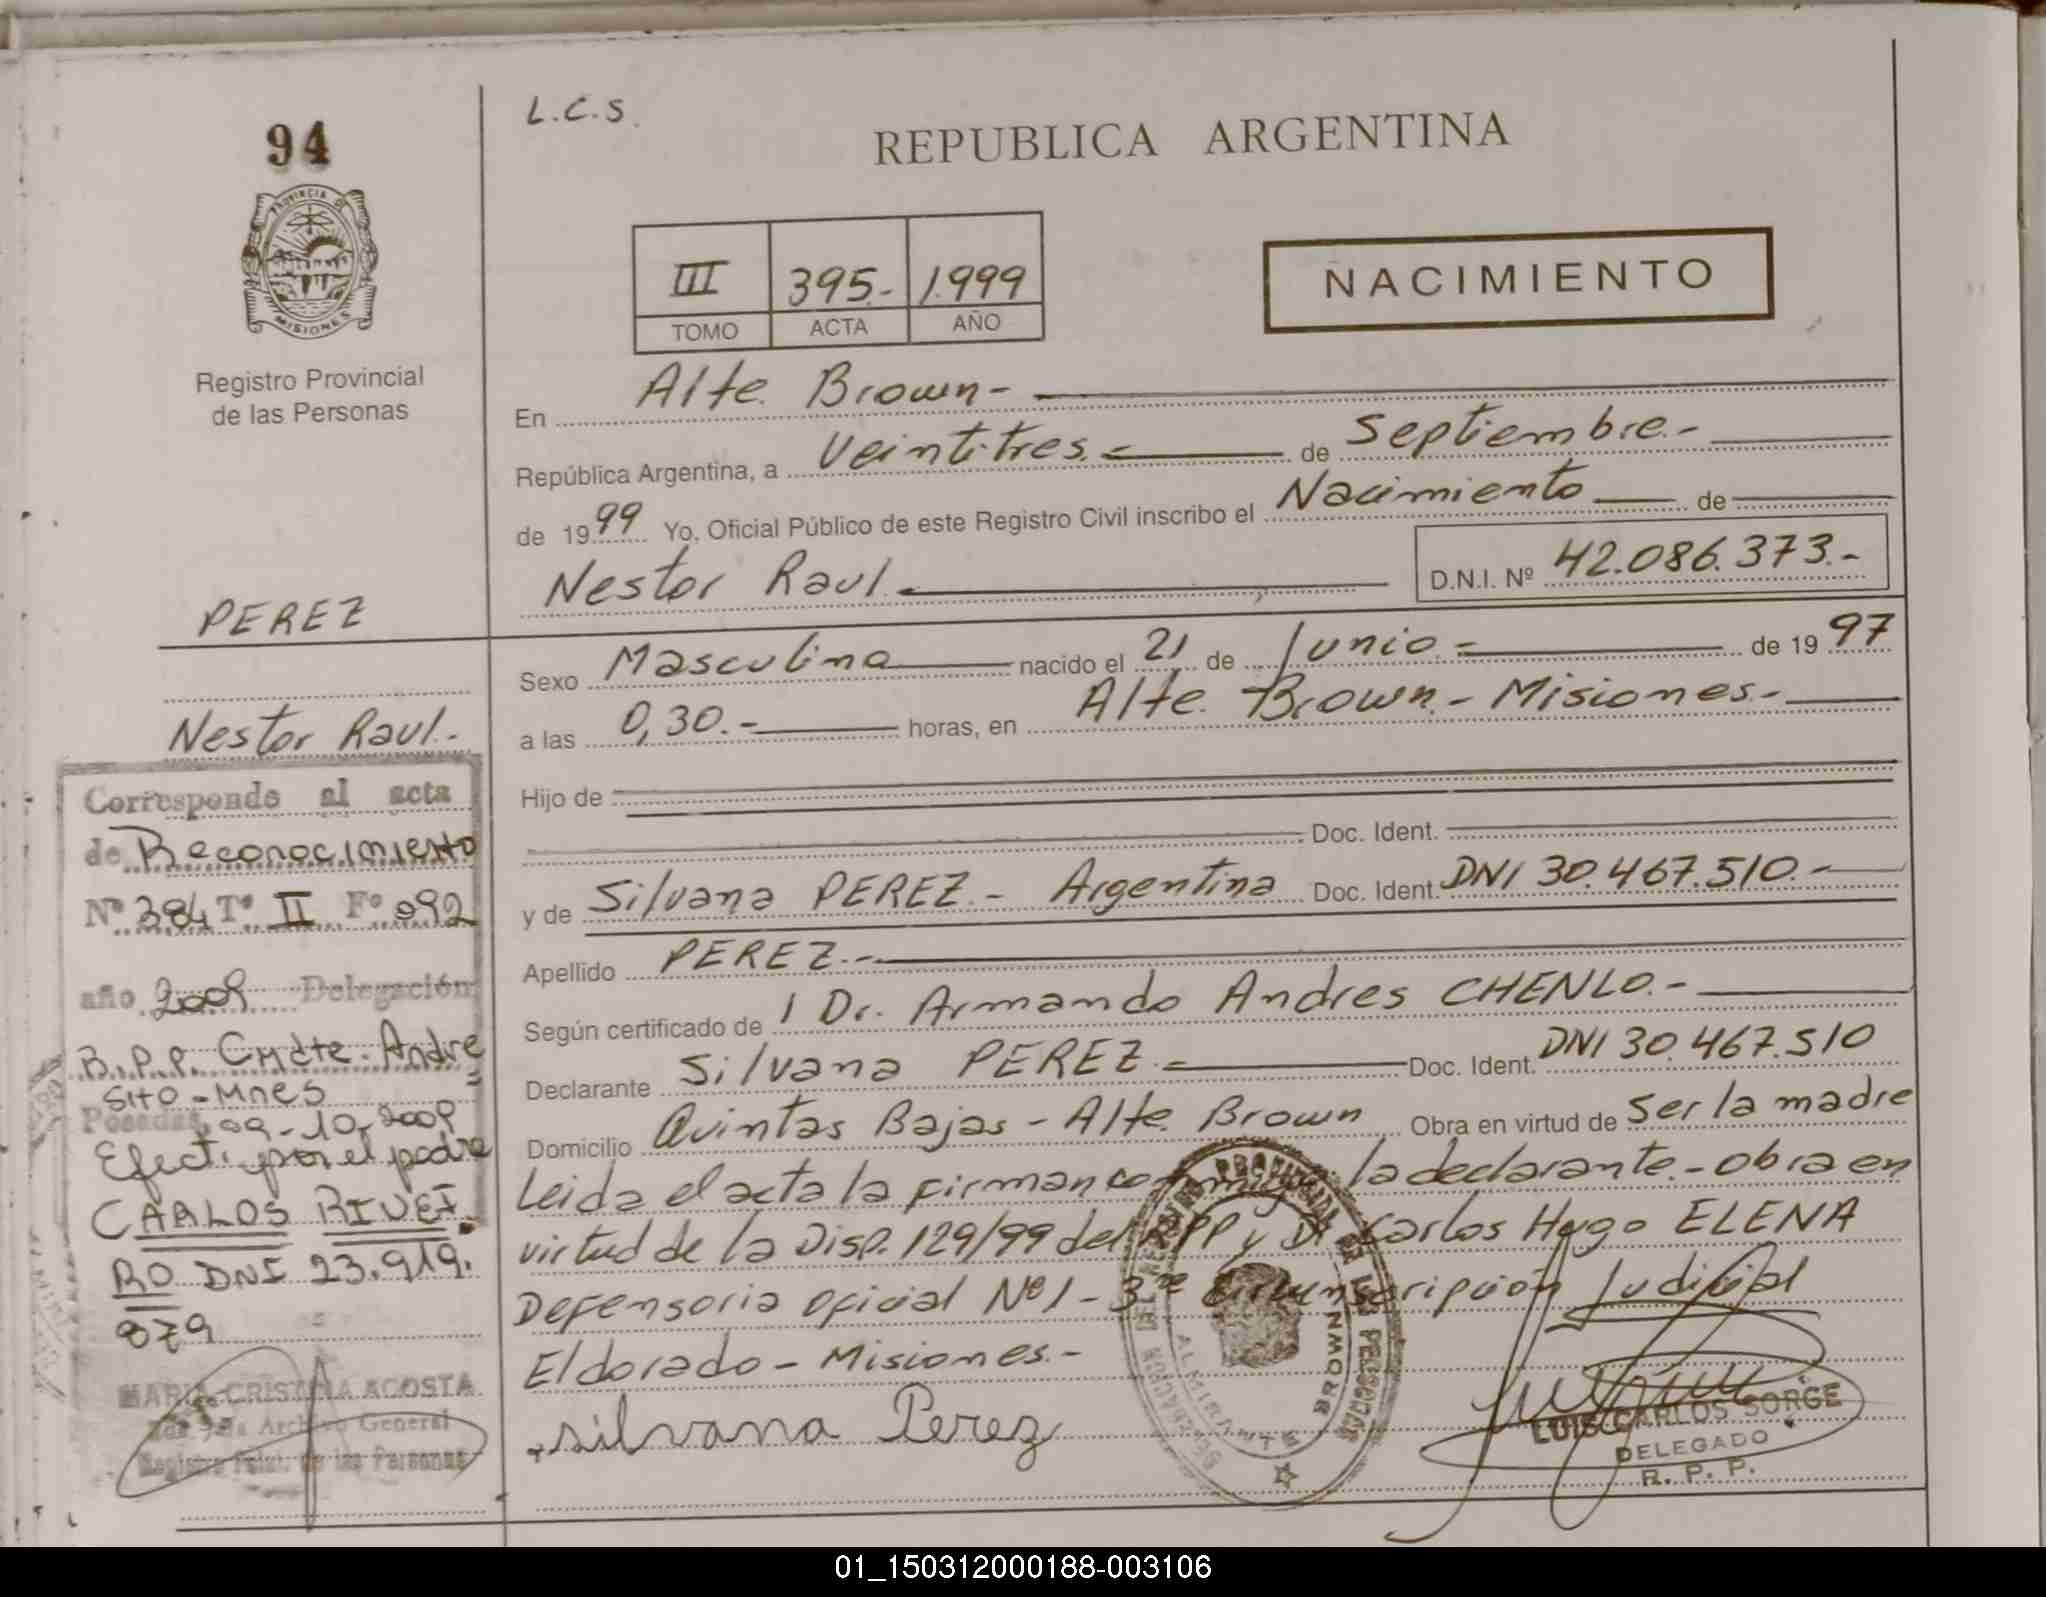 94
PROVINCIA DE
MISIONES
Registro Provincial
de las Personas
PEREZ
Nestor Raul.-
Corresponde al acta
de Reconocimiento
Nº 384 Tº II Fº 092
año 2009 Delegación
R.P.P. Cmdte. Andre
sito - Mnes
Posadas, 09-10-2009
Efect. por el padre
CARLOS RIVEI
RO DNI 23.919.
879
MARIA CRISTINA ACOSTA
Archivo General
Registro de las Personas
L.C.S.
REPUBLICA ARGENTINA
III 395.- 1.999
TOMO ACTA AÑO
NACIMIENTO
En Alte. Brown-
República Argentina, a Veintitres.- de Septiembre.-
de 1999 Yo, Oficial Público de este Registro Civil inscribo el Nacimiento de
Nestor Raul. D.N.I. Nº 42.086.373.-
Sexo Masculino nacido el 21 de Junio.- de 1997
a las 0,30.- horas, en Alte. Brown.- Misiones.-
Hijo de
Doc. Ident.
y de Silvana PEREZ.- Argentina Doc. Ident. DNI 30.467.510.-
Apellido PEREZ.-
Según certificado de 1 Dr. Armando Andres CHENLO.-
Declarante Silvana PEREZ.- Doc. Ident. DNI 30.467.510
Domicilio Quintas Bajas - Alte. Brown Obra en virtud de Ser la madre
Leida el acta la firman conmigo la declarante.- obra en
virtud de la Disp. 129/99 del RPP y Dr. Carlos Hugo ELENA
Defensoria oficial Nº 1 - 3ra Circunscripción Judicial
Eldorado - Misiones.-
Silvana Perez
DELEGACION DEL REGISTRO PROVINCIAL DE LAS PERSONAS
ALMIRANTE BROWN
LUIS CARLOS SORGE
DELEGADO
R. P. P.
01_150312000188-003106